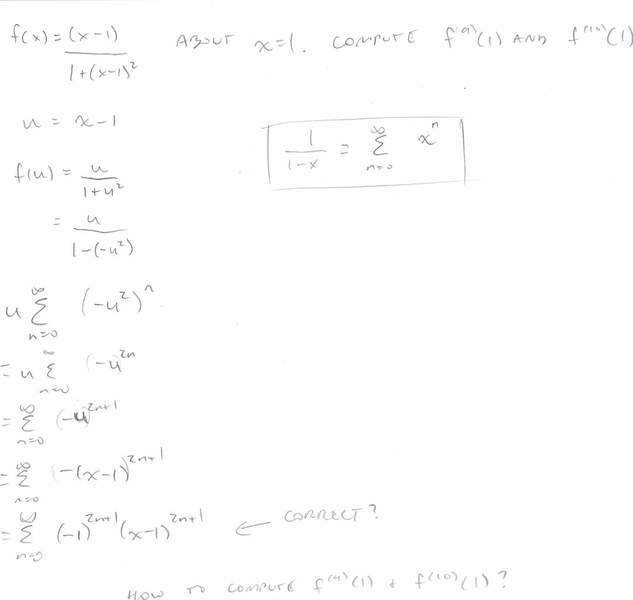 f(x) = (x-1) / 1+(x-1)² ABOUT x=1. COMPUTE f⁽⁹⁾(1) AND f⁽¹⁰⁾(1)
u = x-1
1/(1-x) = ∞ Σ n=0 xⁿ
f(u) = u / 1+u²
= u / 1-(-u²)
u ∞ Σ n=0 (-u²)ⁿ
= u ∞ Σ n=0 (-u)²ⁿ
= ∞ Σ n=0 (-u)²ⁿ⁺¹
= ∞ Σ n=0 (-(x-1)²ⁿ⁺¹
= ∞ Σ n=0 (-1)²ⁿ⁺¹ (x-1)²ⁿ⁺¹ ← CORRECT?
HOW TO COMPUTE f⁽⁹⁾(1) + f⁽¹⁰⁾(1)?